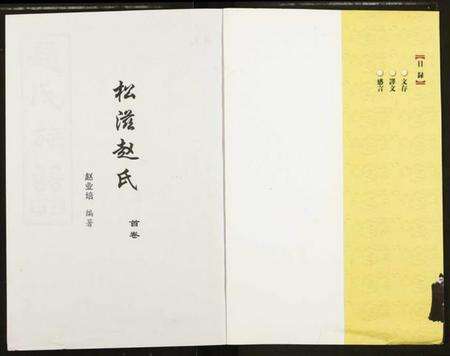 松滋赵氏
首卷
赵业培 编著
【目录】
○文存
○译文
○感言